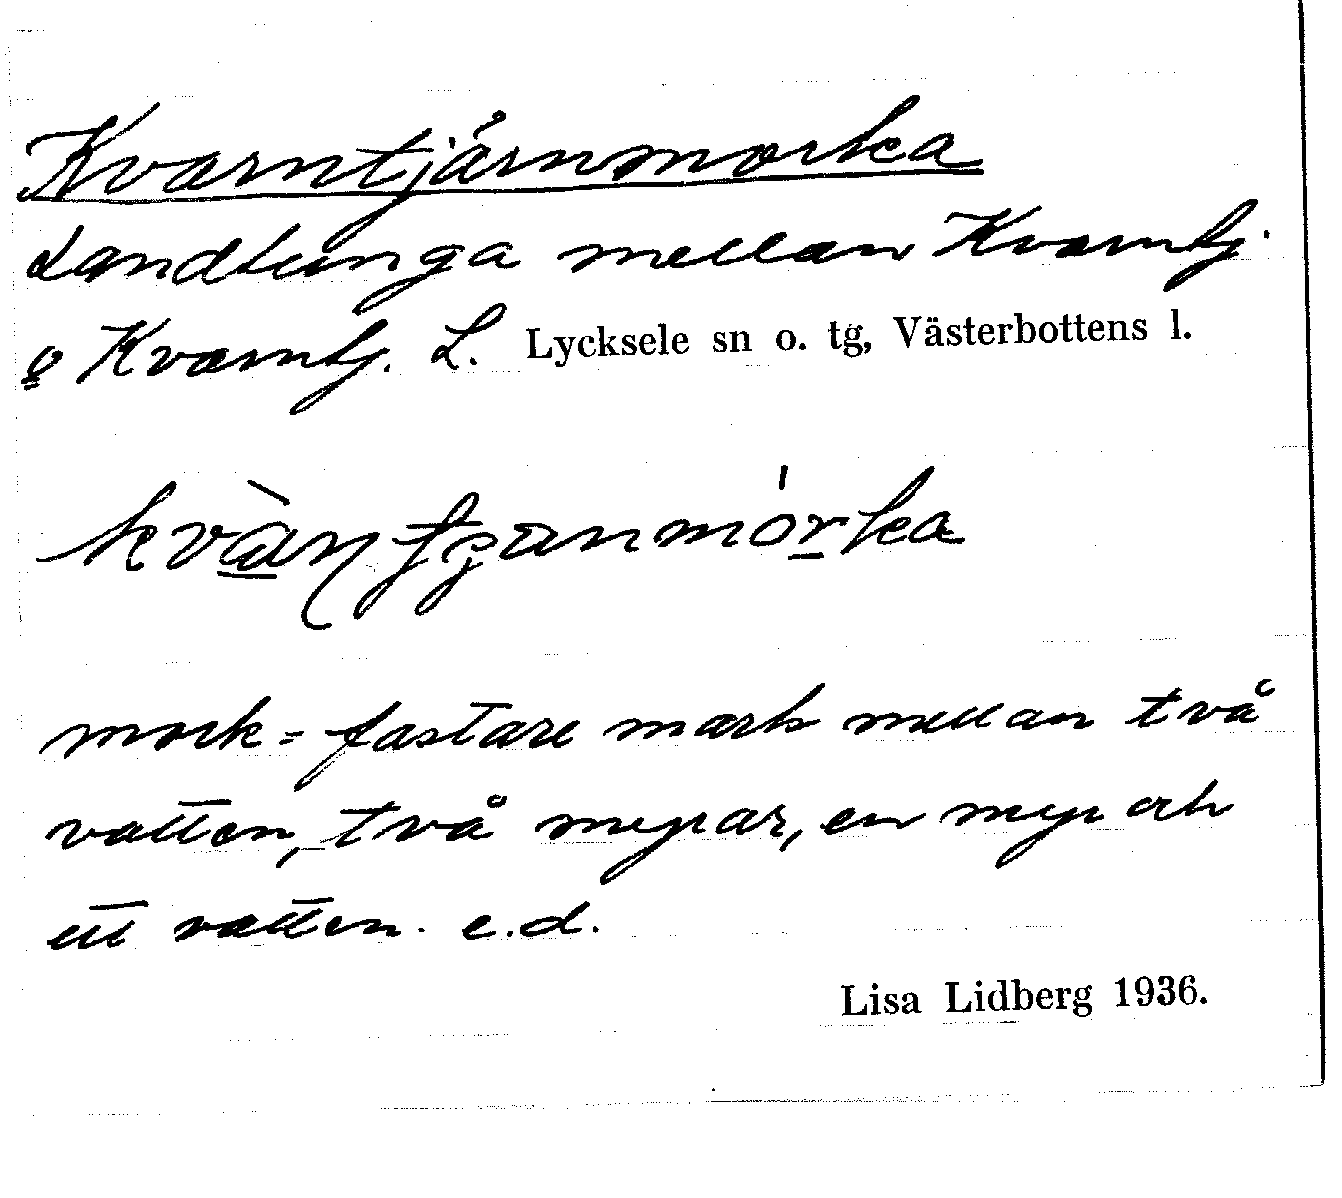 Kvarntjärnmorka
Landtunga mellan Kvarntj.
o Kvarntj. L. Lycksele sn o. tg, Västerbottens l.
mork = fastare mark mellan två
vatten, två myrar, en myr och
ett vatten. e.d.
Lisa Lidberg 1936.